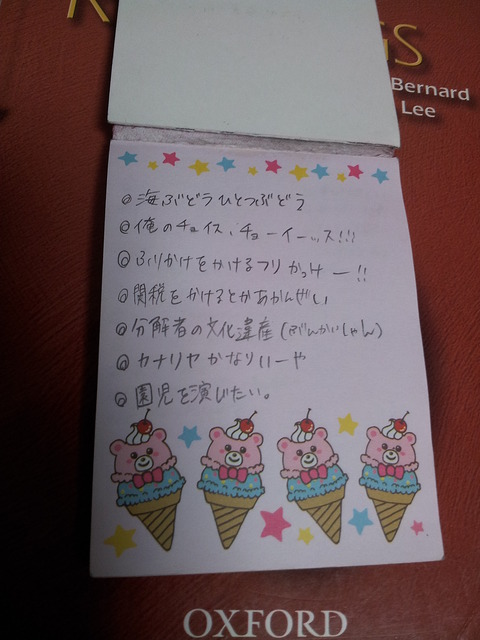 GS
Bernard
Lee
◎海ぶどうひとつぶどう
◎俺のチョイス、チョーイーッス!!!
◎ふりかけをかけるフリかっけー!!
◎関税をかけるとかあかんぜい
◎分解者の文化遺産(ぶんかいしゃん)
◎カナリヤかなりいーや
◎園児を演じたい。
OXFORD